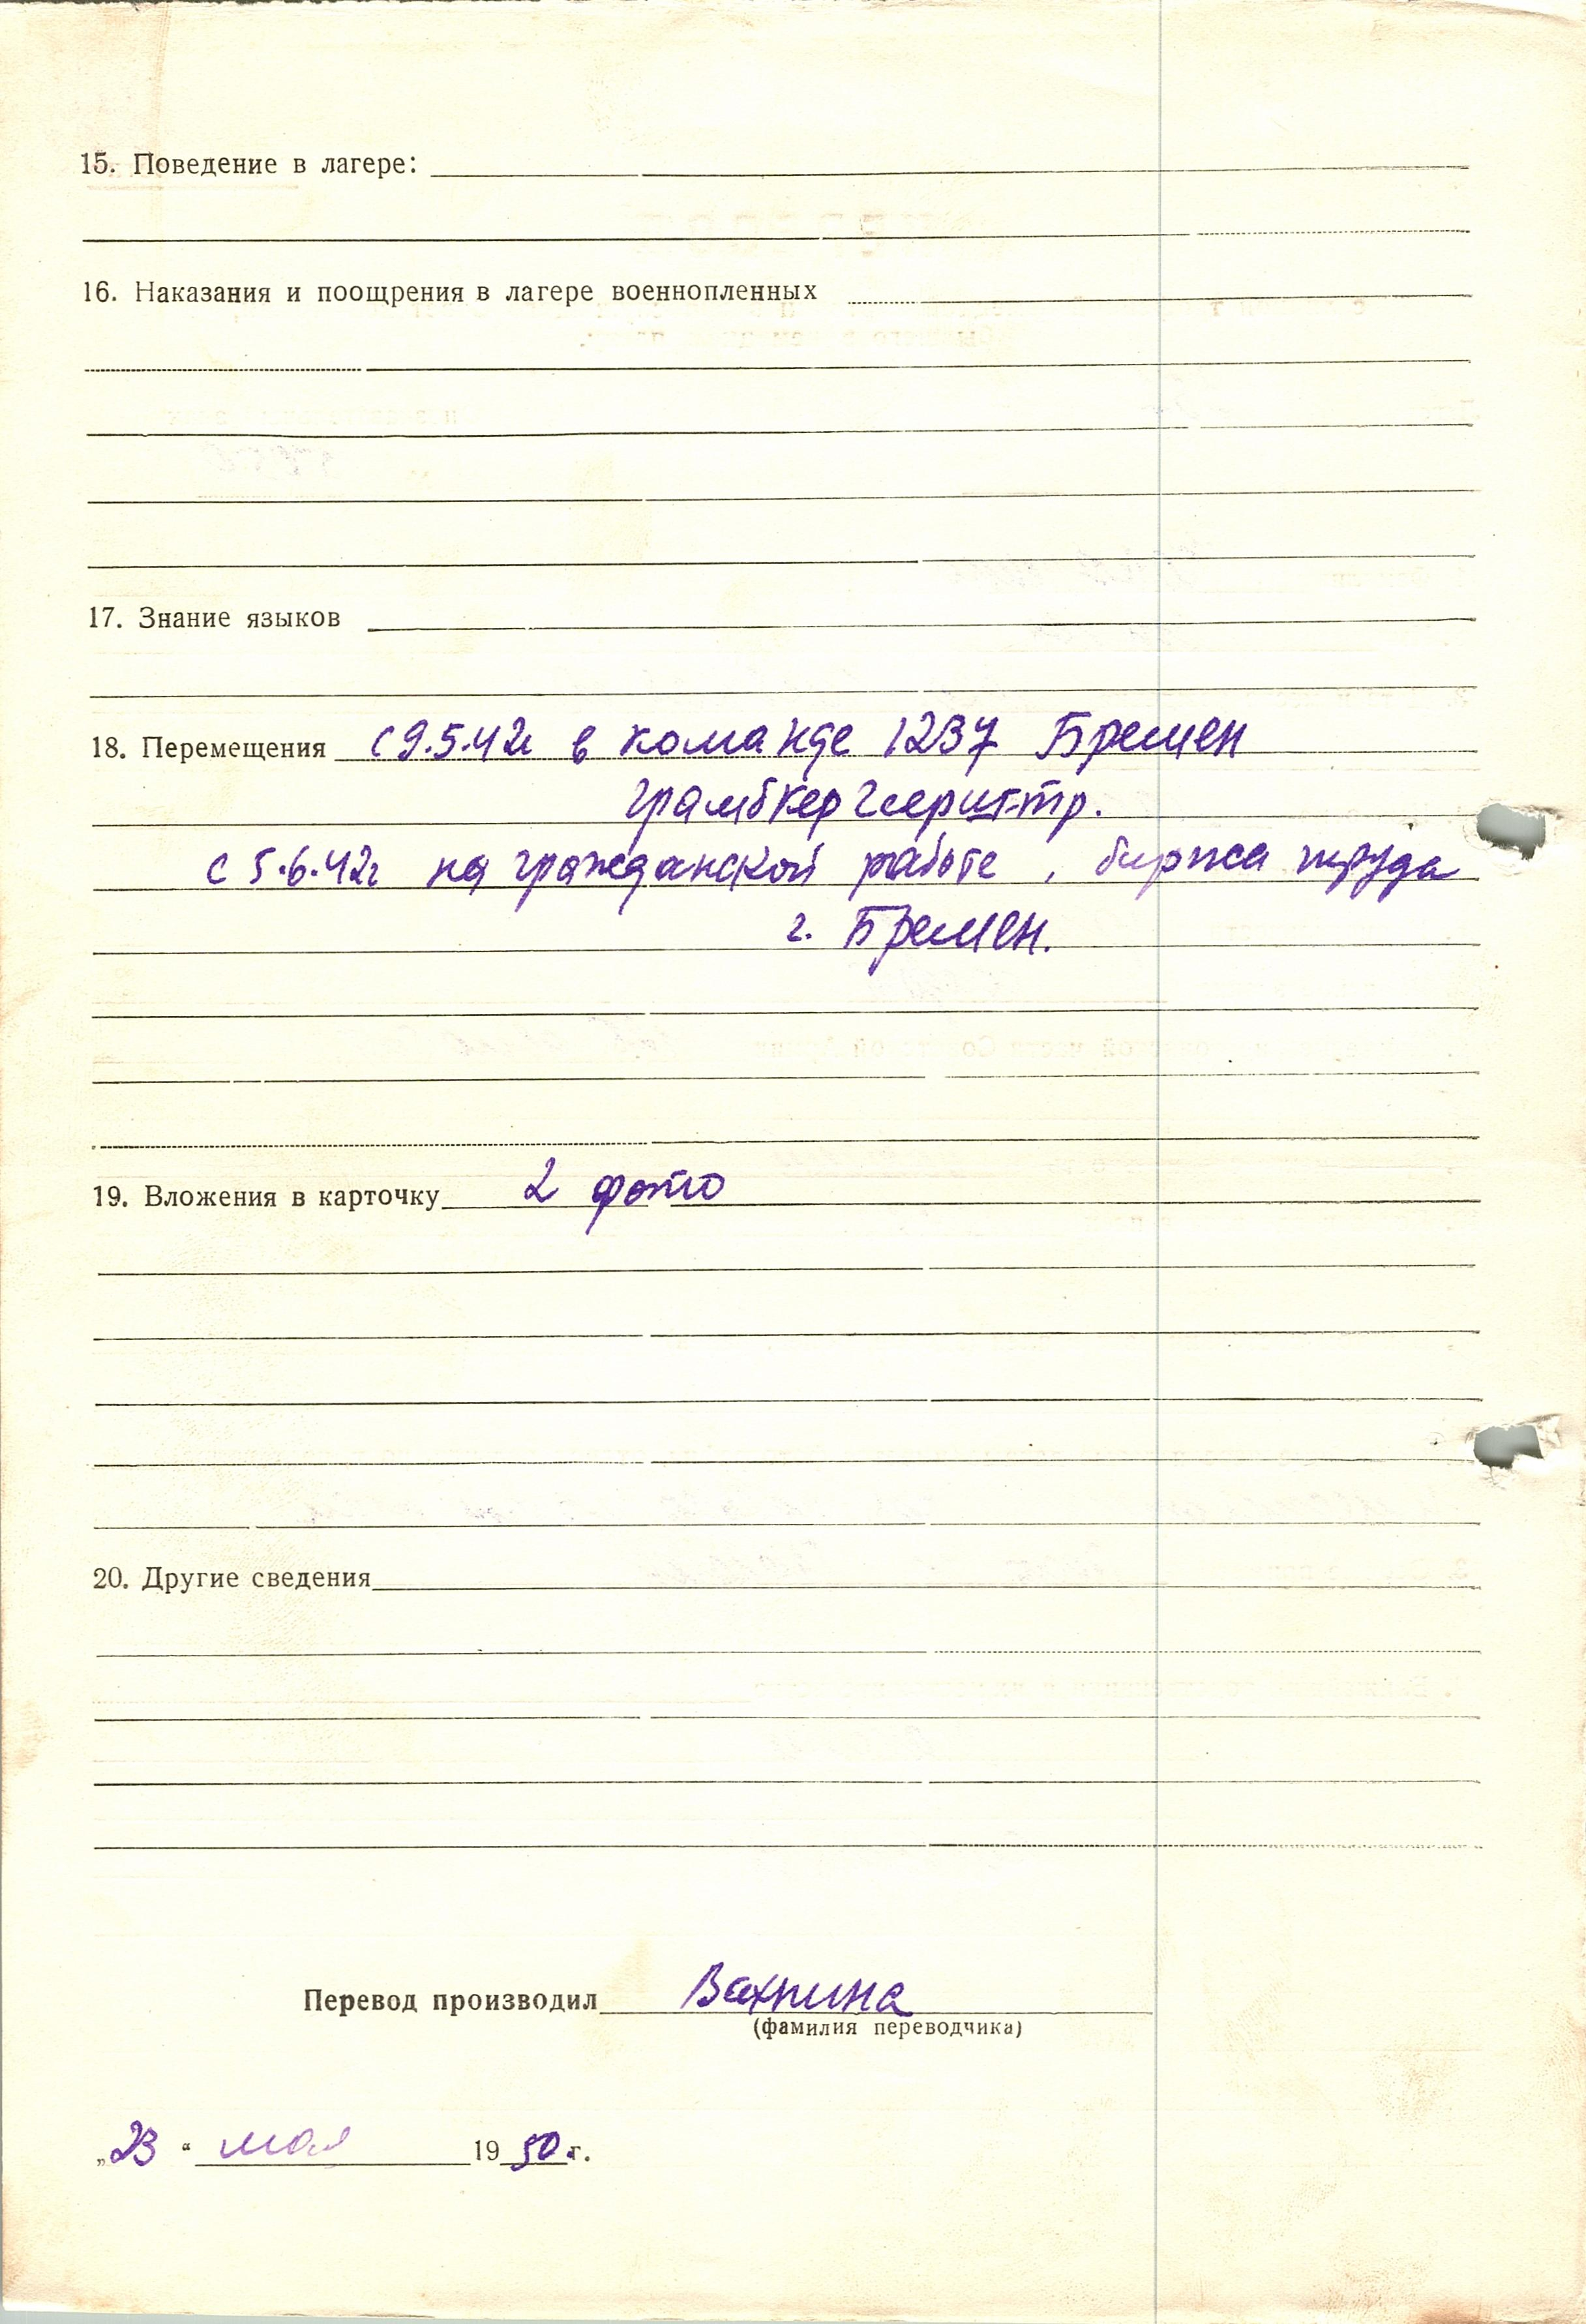 15. Поведение в лагере:
16. Наказания и поощрения в лагере военнопленных
17. Знание языков
18. Перемещения с 9.5.42г в команде 1237 Бремен
с 5.6.42г на гражданской работе, биржа труда
г. Бремен.
19. Вложения в карточку 2 фото
20. Другие сведения
Перевод производил Вахнина
(фамилия переводчика)
„23“ мая 1950 г.